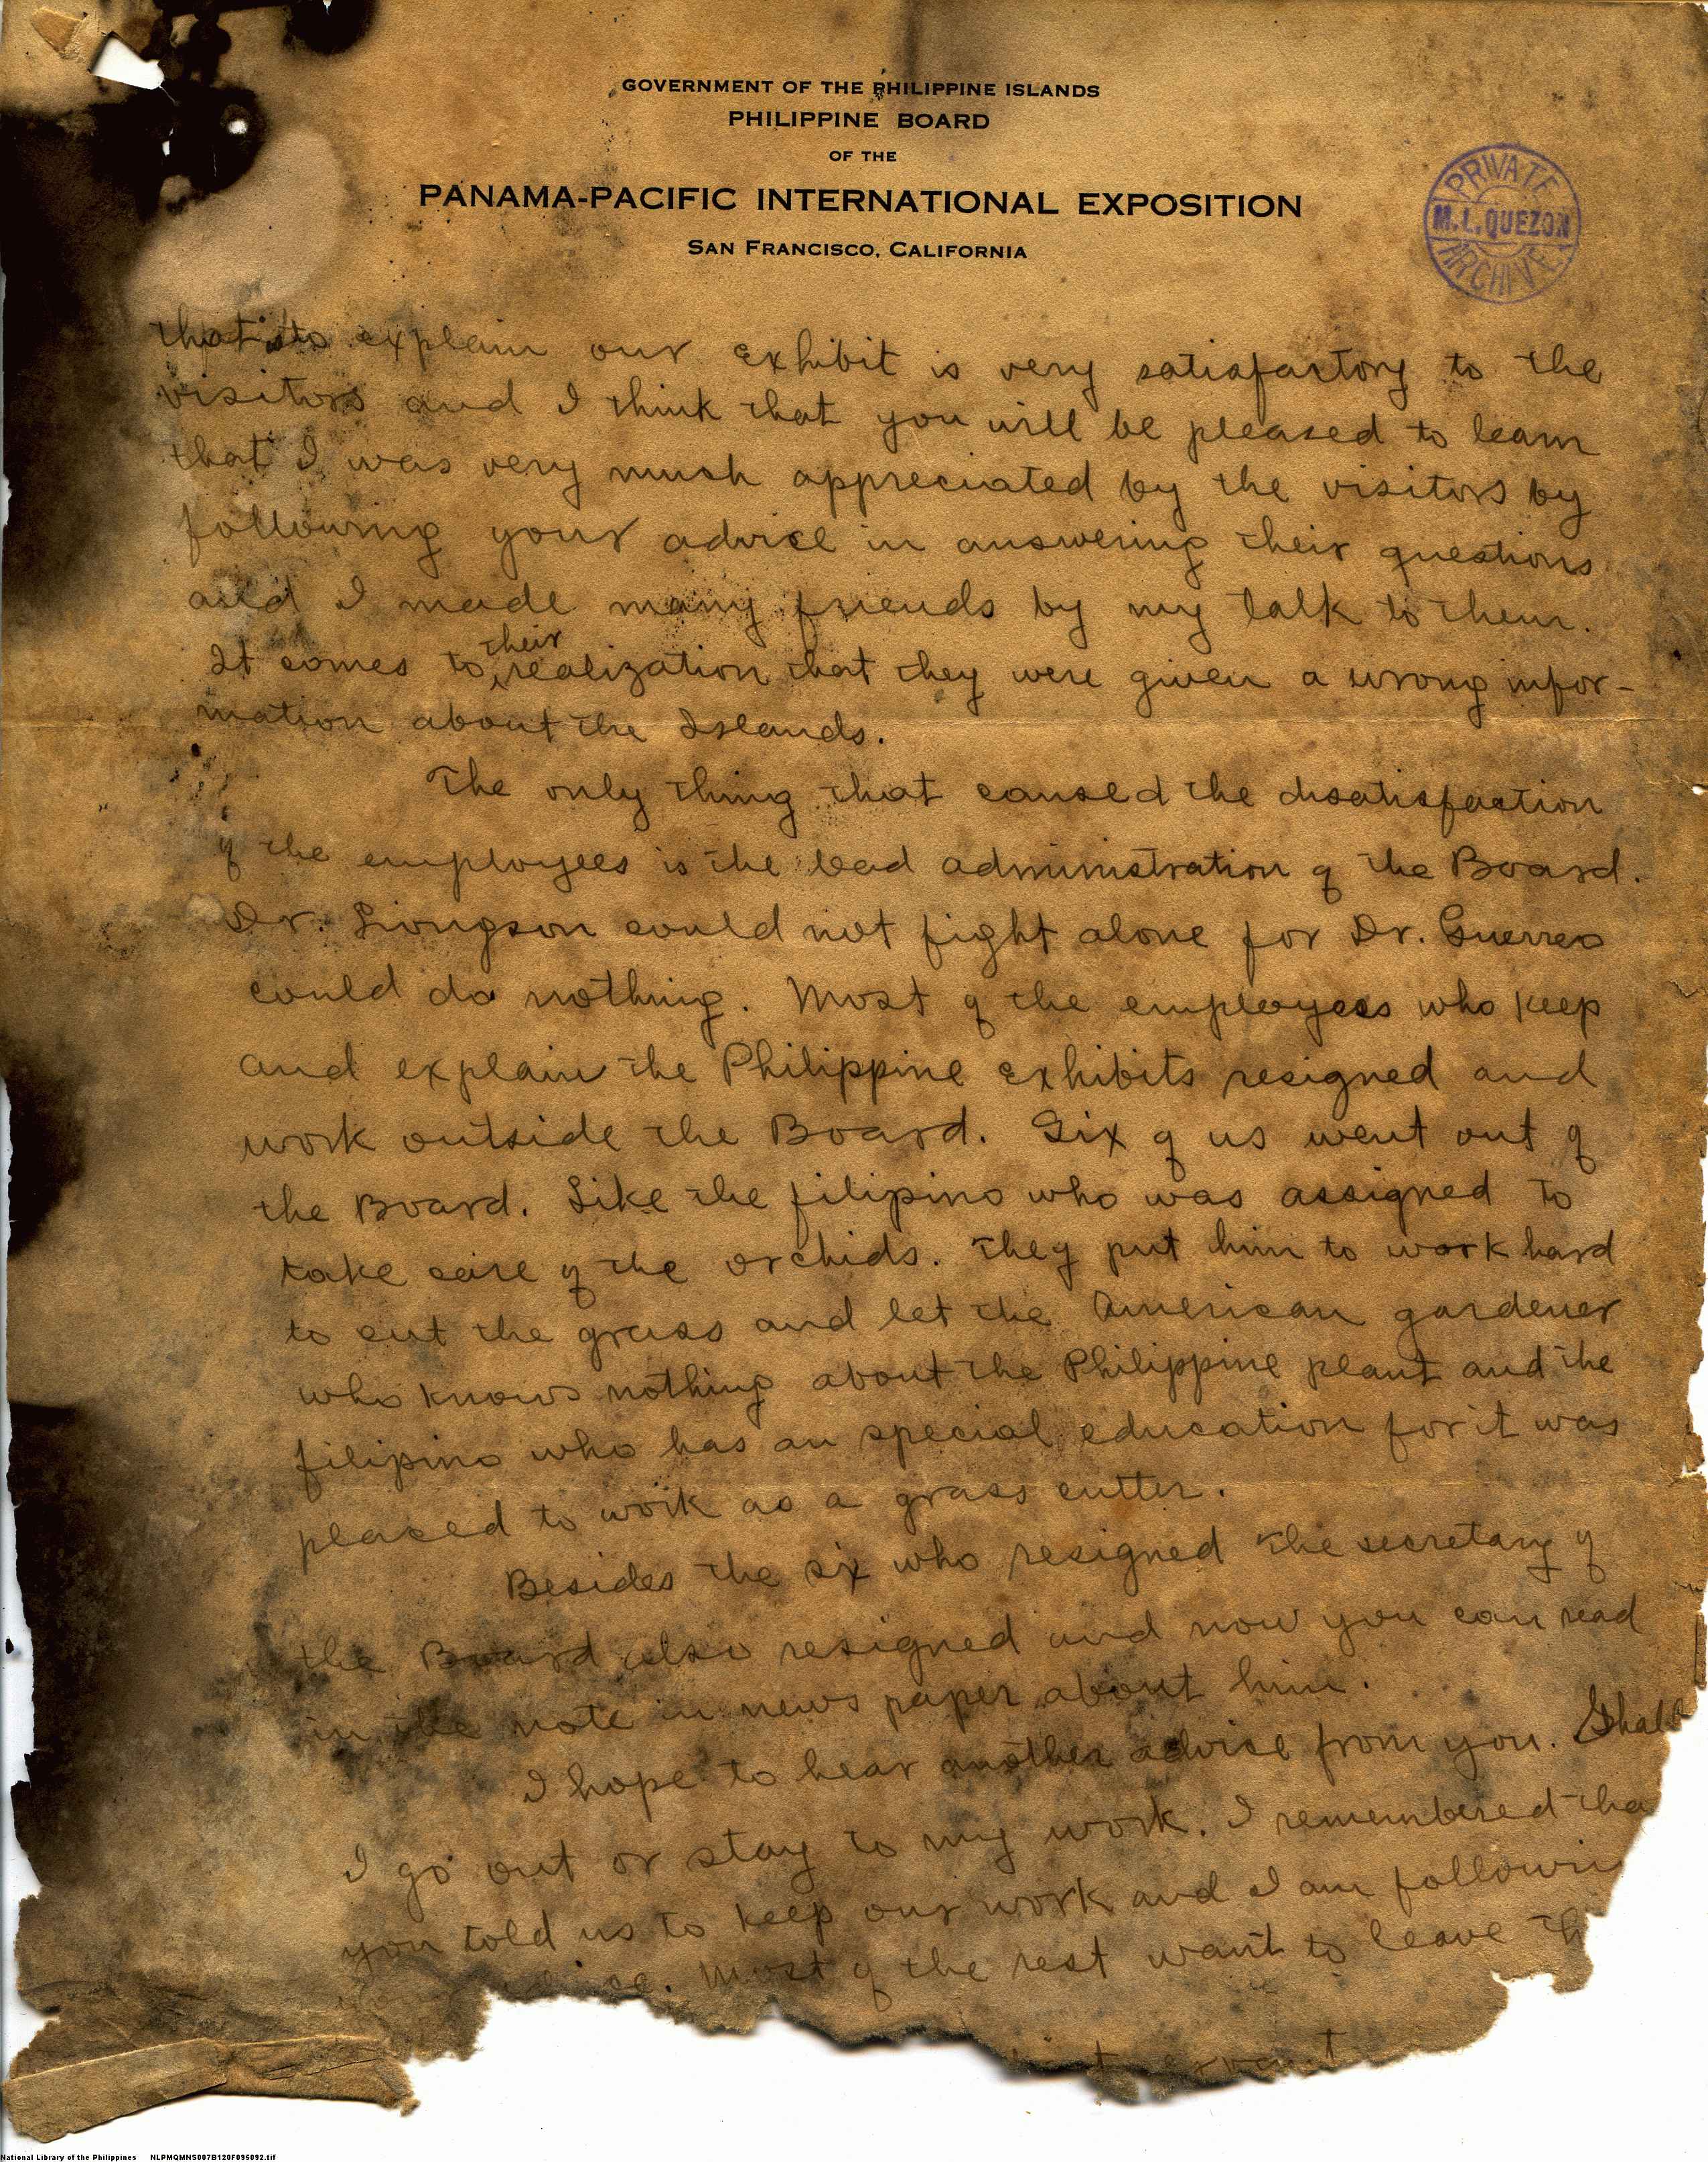 GOVERNMENT OF THE PHILIPPINE ISLANDS
PHILIPPINE BOARD
OF THE
PANAMA-PACIFIC INTERNATIONAL EXPOSITION
SAN FRANCISCO, CALIFORNIA
PRIVATE
M.L. QUEZON
ARCHIVE
that to explain our exhibit is very satisfactory to the
visitors and I think that you will be pleased to learn
that I was very much appreciated by the visitors by
following your advice in answering their questions
and I made many friends by my talk to them.
It comes to their realization that they were given a wrong infor-
mation about the Islands.
The only thing that caused the disatisfaction
of the employees is the bad administration of the Board.
Dr. Liongson could not fight alone for Dr. Guerrero
could do nothing. Most of the employees who keep
and explain the Philippine exhibits resigned and
work outside the Board. Six of us went out of
the Board. Like the filipino who was assigned to
take care of the orchids. They put him to work hard
to cut the grass and let the American gardener
who knows nothing about the Philippine plant and the
filipino who has an special education for it was
placed to work as a grass cutter.
Besides the six who resigned the secretary of
the Board also resigned and now you can read
in the note in news paper about him.
I hope to hear another advice from you. Shall
I go out or stay to my work. I remembered tha
you told us to keep our work and I am followin
Most of the rest want to leave th
National Library of the Philippines NLPMQMNS007B120F095092.tif